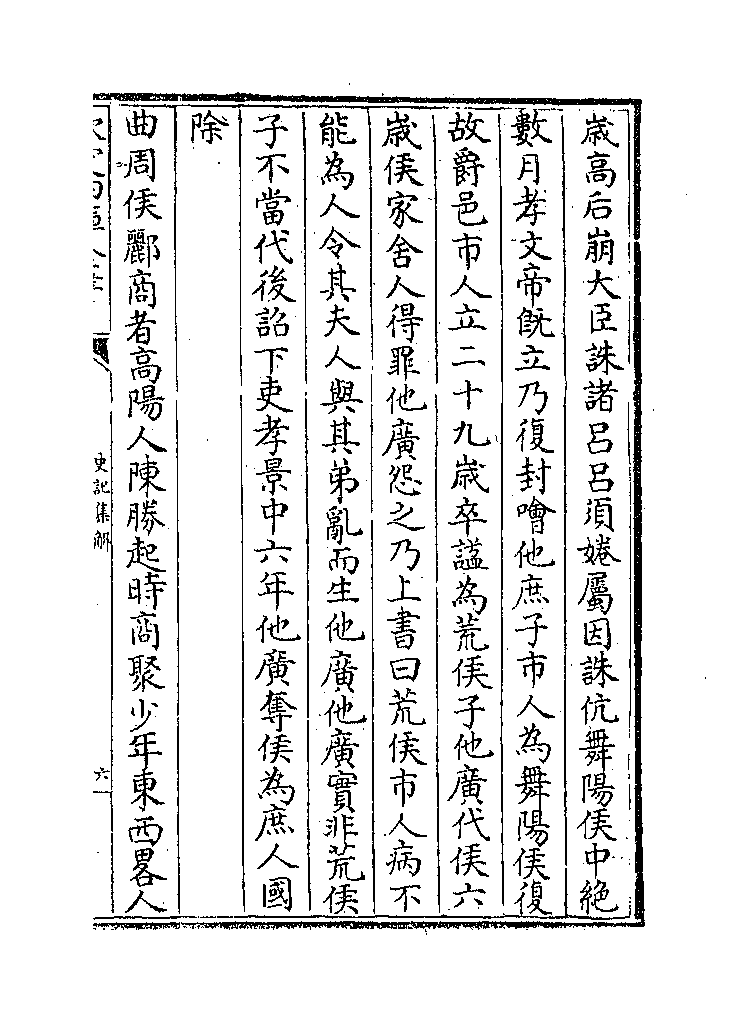 歳髙后崩大臣誅諸呂呂須婘屬因誅伉舞陽侯中絶
數月孝文帝旣立乃復封噲他庶子市人為舞陽侯復
故爵邑市人立二十九歳卒諡為荒侯子他廣代侯六
歳侯家舍人得罪他廣怨之乃上書曰荒侯市人病不
能為人令其夫人與其弟亂而生他廣他廣實非荒侯
子不當代後詔下吏孝景中六年他廣奪侯為庶人國
除
曲周侯酈商者髙陽人陳勝起時商聚少年東西畧人
史記集解
六